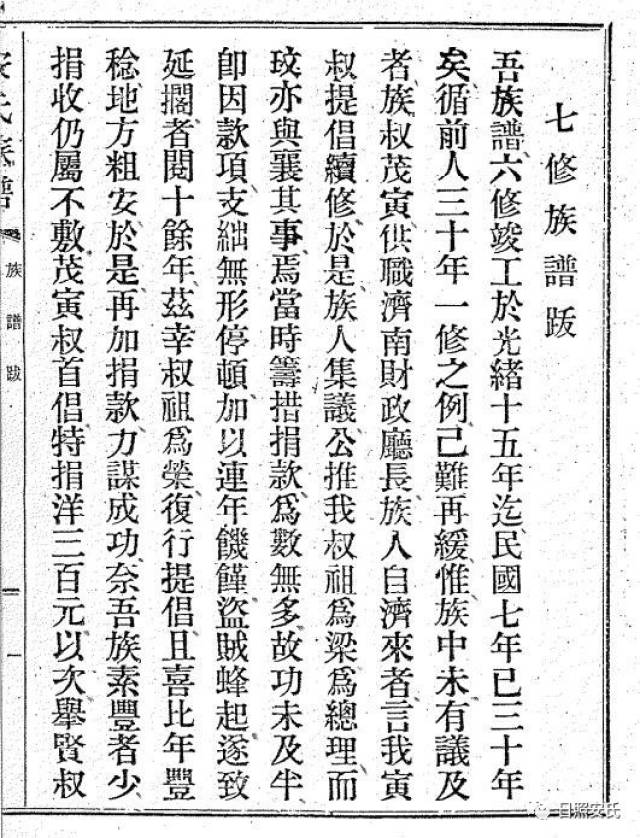 七修族譜跋
吾族譜六修竣工於光緒十五年迄民國七年已三十年
矣循前人三十年一修之例已難再緩惟族中未有議及
者族叔茂寅供職濟南財政廳長族人自濟來者言我寅
叔提倡續修於是族人集議公推我叔祖爲梁爲總理而
玟亦與襄其事焉當時籌措捐款爲數無多故功未及半
卽因款項支絀無形停頓加以連年饑饉盜賊蜂起遂致
延擱者閱十餘年茲幸叔祖爲榮復行提倡且喜比年豐
稔地方粗安於是再加捐款力謀成功奈吾族素豐者少
捐收仍屬不敷茂寅叔首倡特捐洋三百元以次舉賢叔
安氏族譜
族譜跋
一
日照安氏